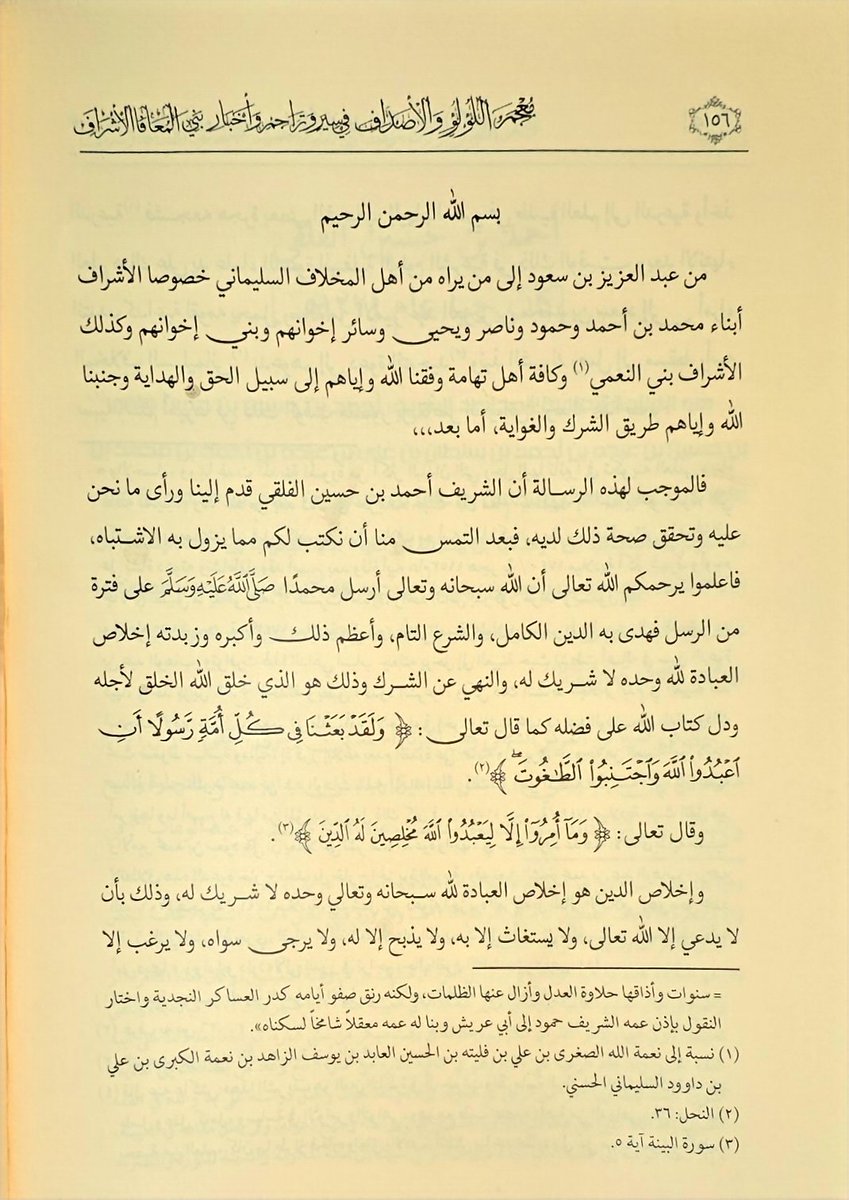 ١٥٦
معجم اللؤلؤ والأصداف في سير وتراجم وأخبار بني المعافا الأشراف
بسم الله الرحمن الرحيم
من عبد العزيز بن سعود إلى من يراه من أهل المخلاف السليماني خصوصا الأشراف
أبناء محمد بن أحمد وحمود وناصر ويحيى وسائر إخوانهم وبني إخوانهم وكذلك
الأشراف بني النعمي(١) وكافة أهل تهامة وفقنا الله وإياهم إلى سبيل الحق والهداية وجنبنا
الله وإياهم طريق الشرك والغواية، أما بعد،،،
فالموجب لهذه الرسالة أن الشريف أحمد بن حسين الفلقي قدم إلينا ورأى ما نحن
عليه وتحقق صحة ذلك لديه، فبعد التمس منا أن نكتب لكم مما يزول به الاشتباه،
فاعلموا يرحمكم الله تعالى أن الله سبحانه وتعالى أرسل محمدًا صَلَّى اللَّهُ عَلَيْهِ وَسَلَّمَ على فترة
من الرسل فهدى به الدين الكامل، والشرع التام، وأعظم ذلك وأكبره وزبدته إخلاص
العبادة لله وحده لا شريك له، والنهي عن الشرك وذلك هو الذي خلق الله الخلق لأجله
ودل كتاب الله على فضله كما قال تعالى: ﴿ وَلَقَدْ بَعَثْنَا فِي كُلِّ أُمَّةٍ رَّسُولًا أَنِ
اعْبُدُوا اللَّهَ وَاجْتَنِبُوا الطَّاغُوتَ ۖ ﴾(٢).
وقال تعالى: ﴿ وَمَا أُمِرُوا إِلَّا لِيَعْبُدُوا اللَّهَ مُخْلِصِينَ لَهُ الدِّينَ ﴾(٣).
وإخلاص الدين هو إخلاص العبادة لله سبحانه وتعالي وحده لا شريك له، وذلك بأن
لا يدعي إلا الله تعالى، ولا يستغاث إلا به، ولا يذبح إلا له، ولا يرجى سواه، ولا يرغب إلا
= سنوات وأذاقها حلاوة العدل وأزال عنها الظلمات، ولكنه رنق صفو أيامه كدر العساكر النجدية واختار
النقول بإذن عمه الشريف حمود إلى أبي عريش وبنا له عمه معقلاً شامخاً لسكناه».
(١) نسبة إلى نعمة الله الصغرى بن علي بن فليته بن الحسين العابد بن يوسف الزاهد بن نعمة الكبرى بن علي
بن داوود السليماني الحسني.
(٢) النحل: ٣٦.
(٣) سورة البينة آية ٥.